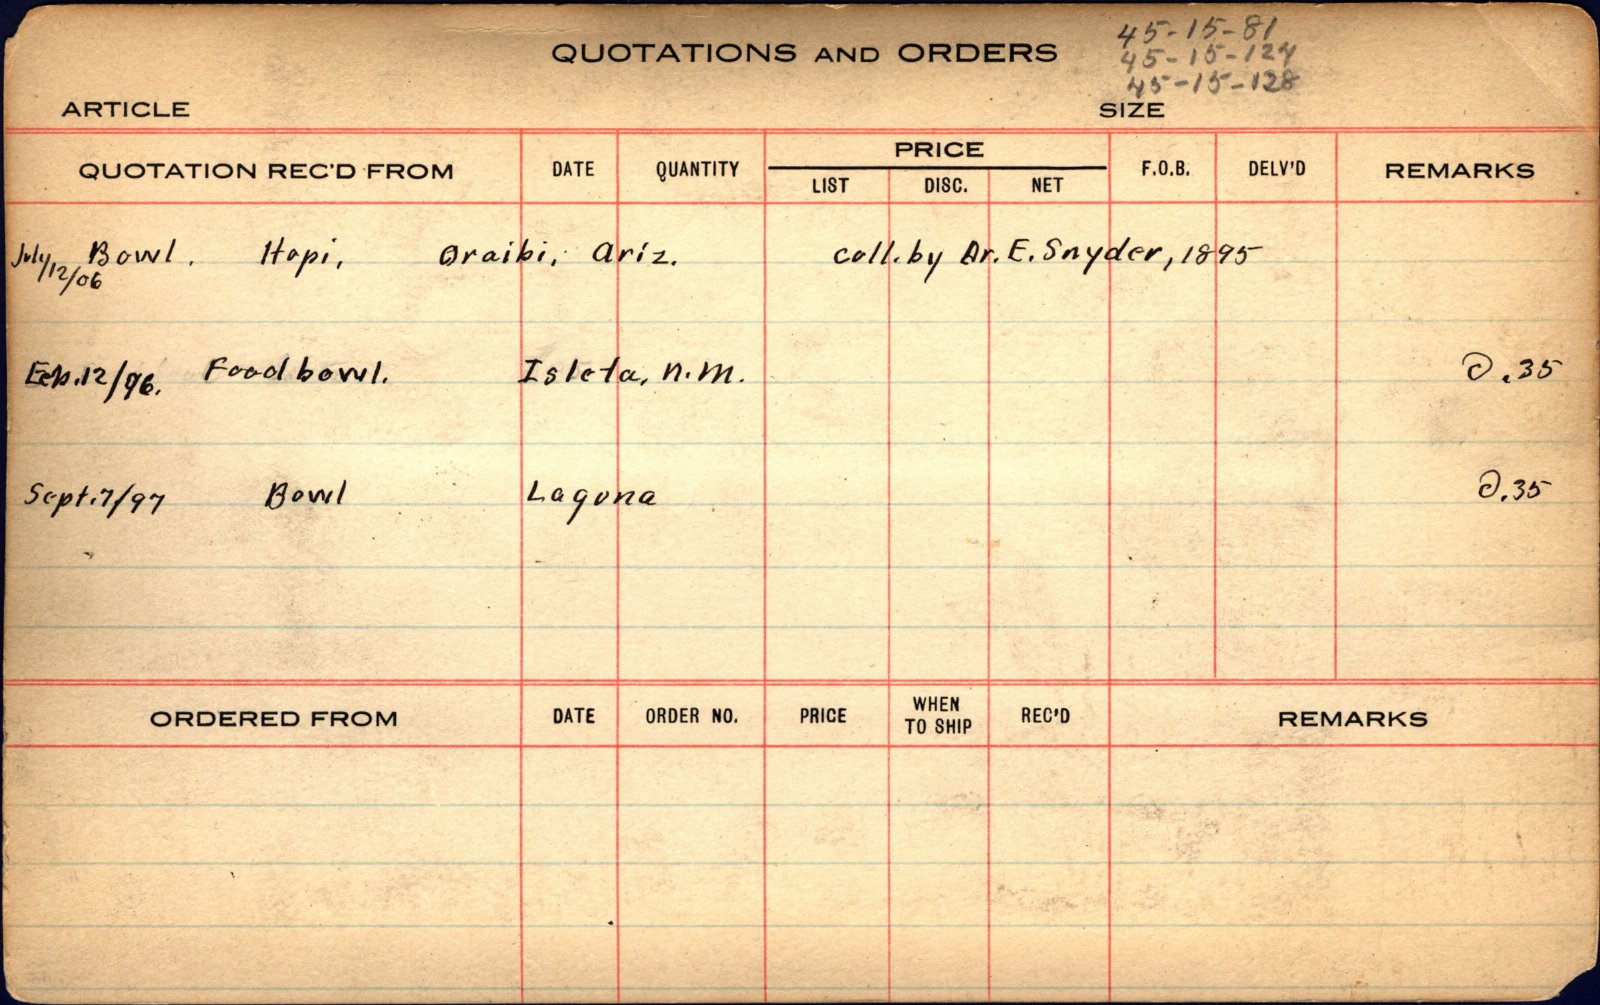 QUOTATIONS AND ORDERS
45-15-81
45-15-124
45-15-128
ARTICLE SIZE
QUOTATION REC'D FROM DATE QUANTITY PRICE LIST DISC. NET F.O.B. DELV'D REMARKS
July 12/06 Bowl. Hopi, Oraibi, Ariz. coll. by Dr. E. Snyder, 1895
Feb. 12/96. Food bowl. Isleta, N.M. .35
Sept. 7/97 Bowl Laguna .35
ORDERED FROM DATE ORDER NO. PRICE WHEN TO SHIP REC'D REMARKS